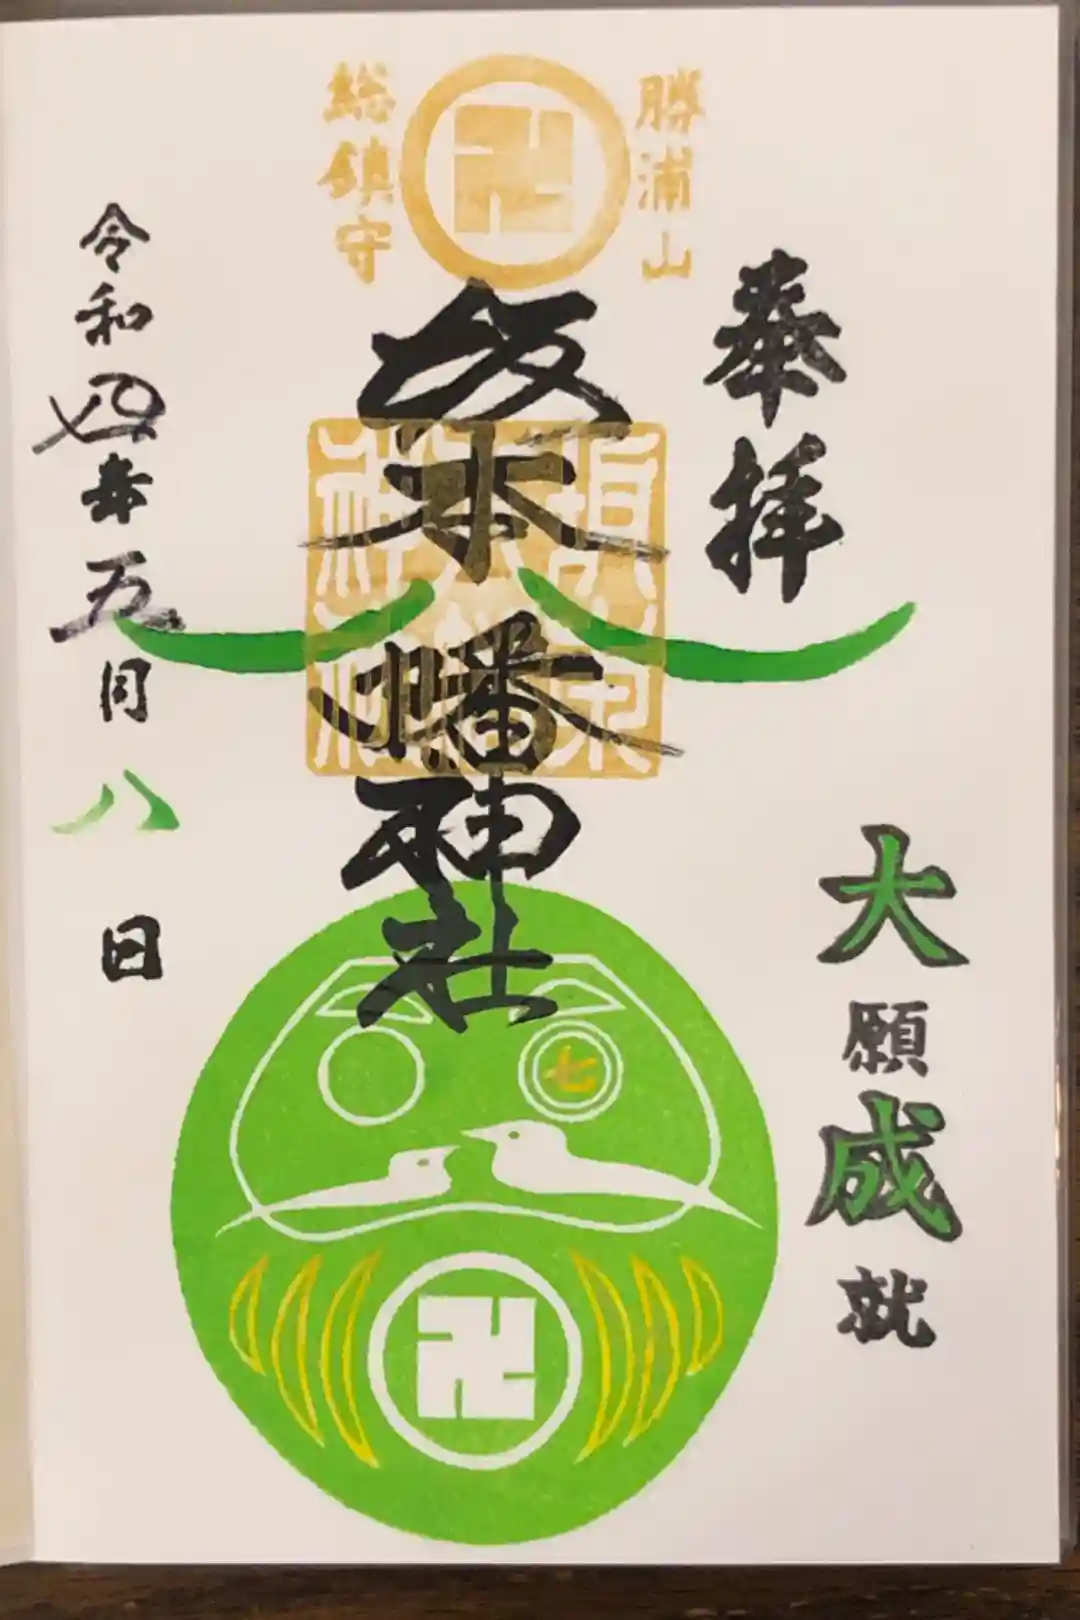 奉拝
大願成就
勝浦山
総鎮守
坂本八幡神社
七
令和四年五月八日